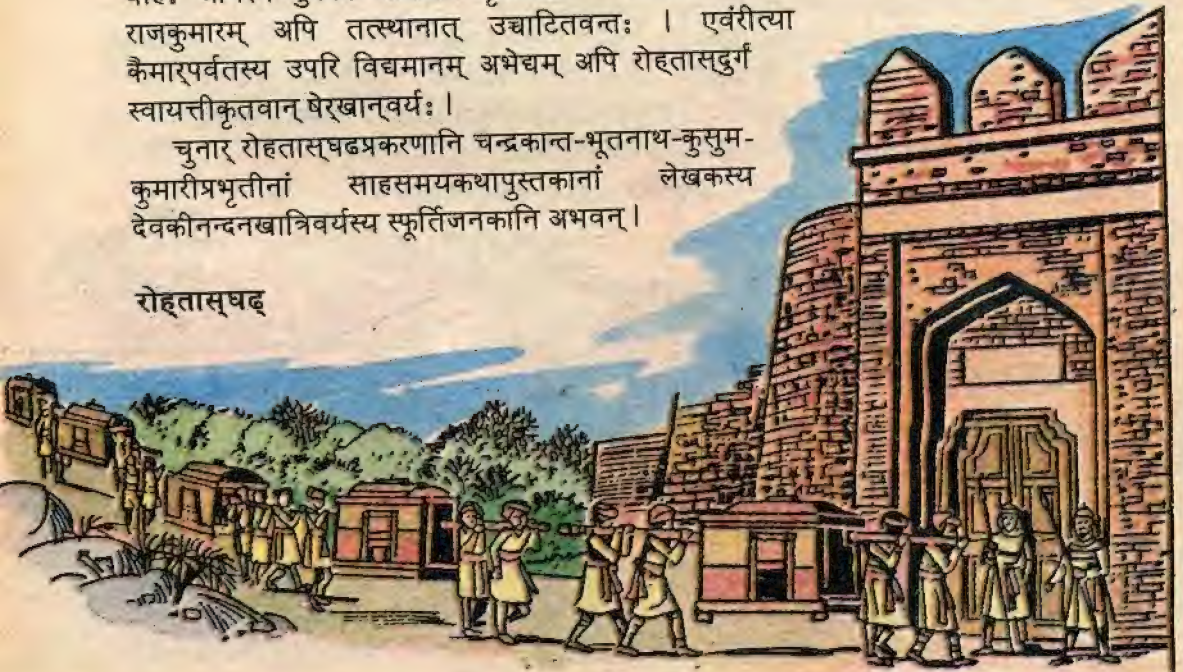 राजकुमारम् अपि तत्स्थानात् उच्चाटितवन्तः । एवंरीत्या
कैमार्‌पर्वतस्य उपरि विद्यमानम् अभेद्यम् अपि रोह्तास्‌दुर्गं
स्वायत्तीकृतवान् षेर्‌खान्‌वर्यः ।
चुनार् रोह्तास्‌घढप्रकरणानि चन्द्रकान्त-भूतनाथ-कुसुम-
कुमारीप्रभृतीनां साहसमयकथापुस्तकानां लेखकस्य
देवकीनन्दनखात्रिवर्यस्य स्फूर्तिजनकानि अभवन् ।
रोह्तास्‌घढ्